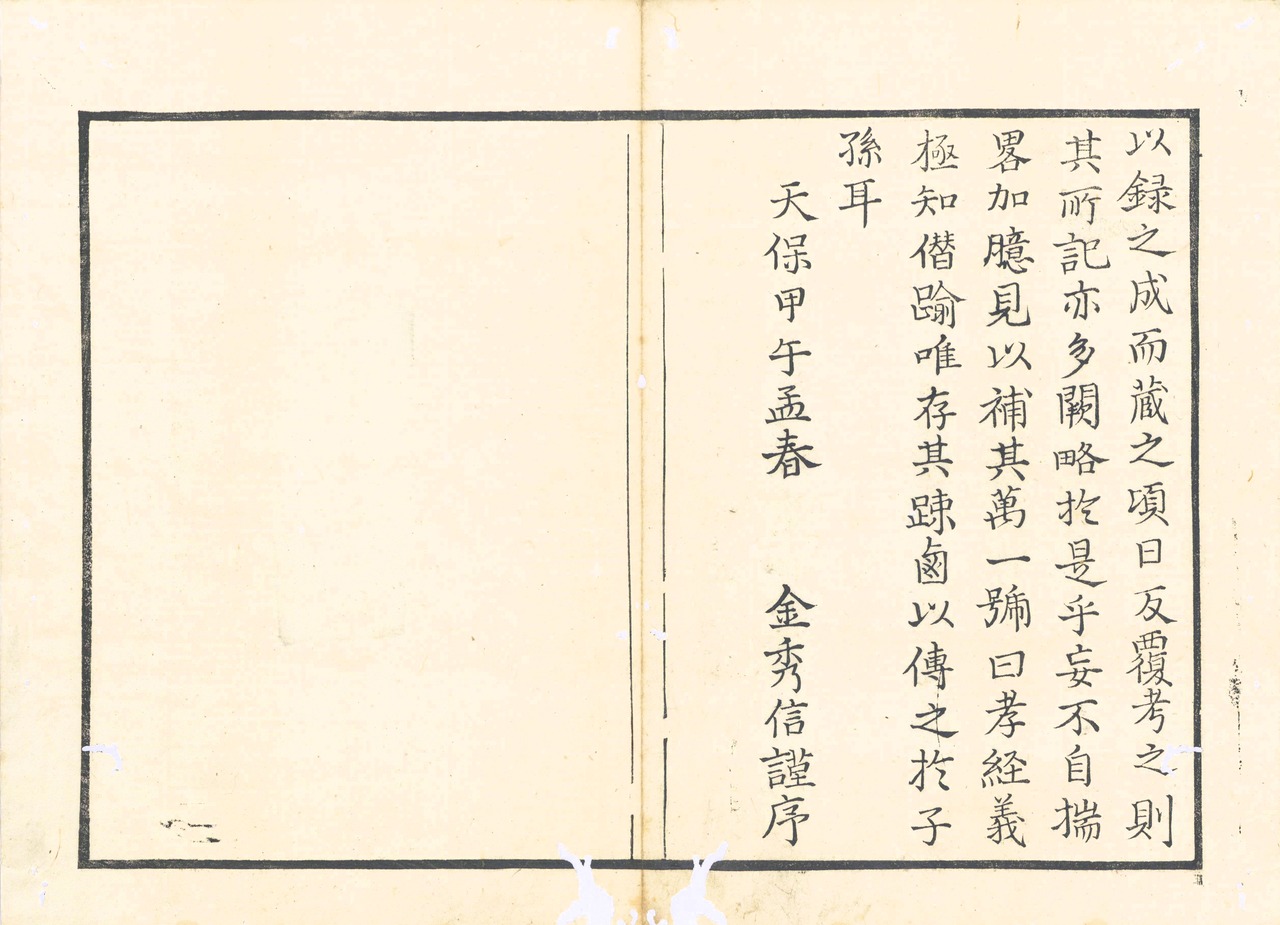 以録之成而蔵之頃日反覆考之則
其所記亦多闕略於是乎妄不自揣
畧加臆見以補其萬一號曰孝経義
極知僭踰唯存其踈鹵以傳之於子
孫耳
天保甲午孟春 金秀信謹序